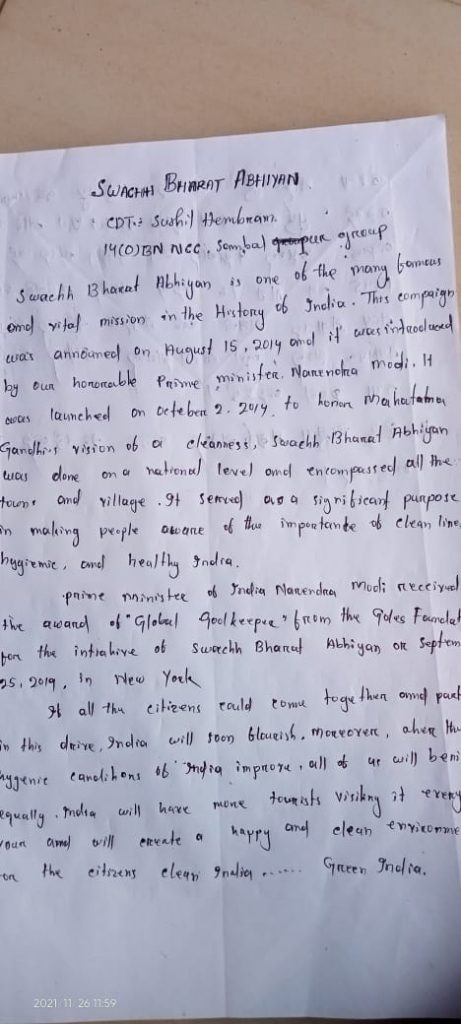 SWACHH BHARAT ABHIYAN
CDT.: Sushil Hembram.
14(O)BN NCC, Sambal pur group
Swachh Bharat Abhiyan is one of the many famous
and vital mission in the History of India. This compaign
was announed on August 15, 2014 and it was introduced
by our honorable Prime minister. Narendra modi. It
was launched on october 2. 2014, to honor Mahatama
Gandhi's vision of a cleanness, Swachh Bharat Abhiyan
was done on a national level and encompassed all the
towns and village. It served as a significant purpose
in making people aware of the importanke of clean line
hygiemic, and healthy India.
prime mninister of India Narendra Modi received
the award of "Global Goolkeeper" from the Goles Foundat
for the intiahive of Swachh Bharat Abhiyan on Septem
25, 2019, In New York
If all the citizens could come together annd part
in this drive, India will soon flourish. Moreover, aher the
hygenic candihons of India improve, all of us will beni
equally. India will have more tourists visiting it every
your and will create a happy and clean environme
on the citizens clean India...... Green India.
2021/11/26 11:59